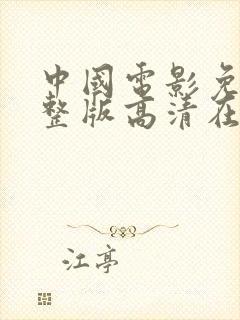 中國電影免
整版高清在
江亭